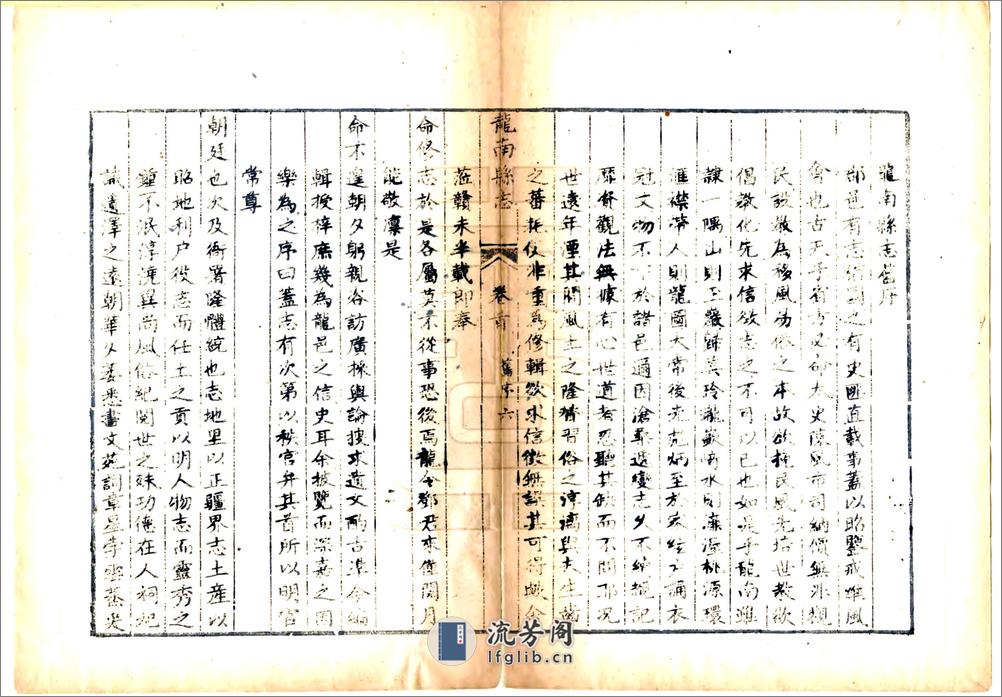 龍南縣志舊序
郡邑有志猶國之有史匪直載事蓋以昭鑒戒維風
會也古天子省方又命太史陳風市司納價無非觀
民設教為移風易俗之本故欲挽民風先培世教欲
倡敎化先求信欲志之不可以已也如是乎龍南雖
隷一隅山則玉巖歸美玲瓏水則濂源桃源環
滙襟帶人則龍圖大常後先炳至於家絃誦衣
冠文物不於諸邑邇因滄桑遞變志久不續擬記
歷舒觀法無據有心世道者忍聽其缺而不問耶况
世遠年湮其間風土之隆替習俗之淳漓與夫生齒
之蕃耗仪非重為修輯欲求信徵無誤其可得歟余
蒞贛未半載即奉
命修志於是各屬莫不從事恐後焉龍令鄧君來僅閱月
能敬凛是
命不遑朝夕躬親咨訪廣採輿論搜求遺文酌古準今編
輯授梓庶幾為龍邑之信史耳余披覽而深嘉之因
樂為之序曰蓋志有次第以秩官弁其首所以明官
常尊
朝廷也次及衙署隆體統也志地里以正疆界志土產以
昭地利户役志而任土之貢以明人物志而靈秀之
鍾不泯淳澆異尚風俗紀閱世之殊功德在人祠祀
識遺澤之遠朝華夕悉畫文苑詞章星李雲蒸
龍南縣志
卷首
舊序六
流芳阁
lfglib.cn